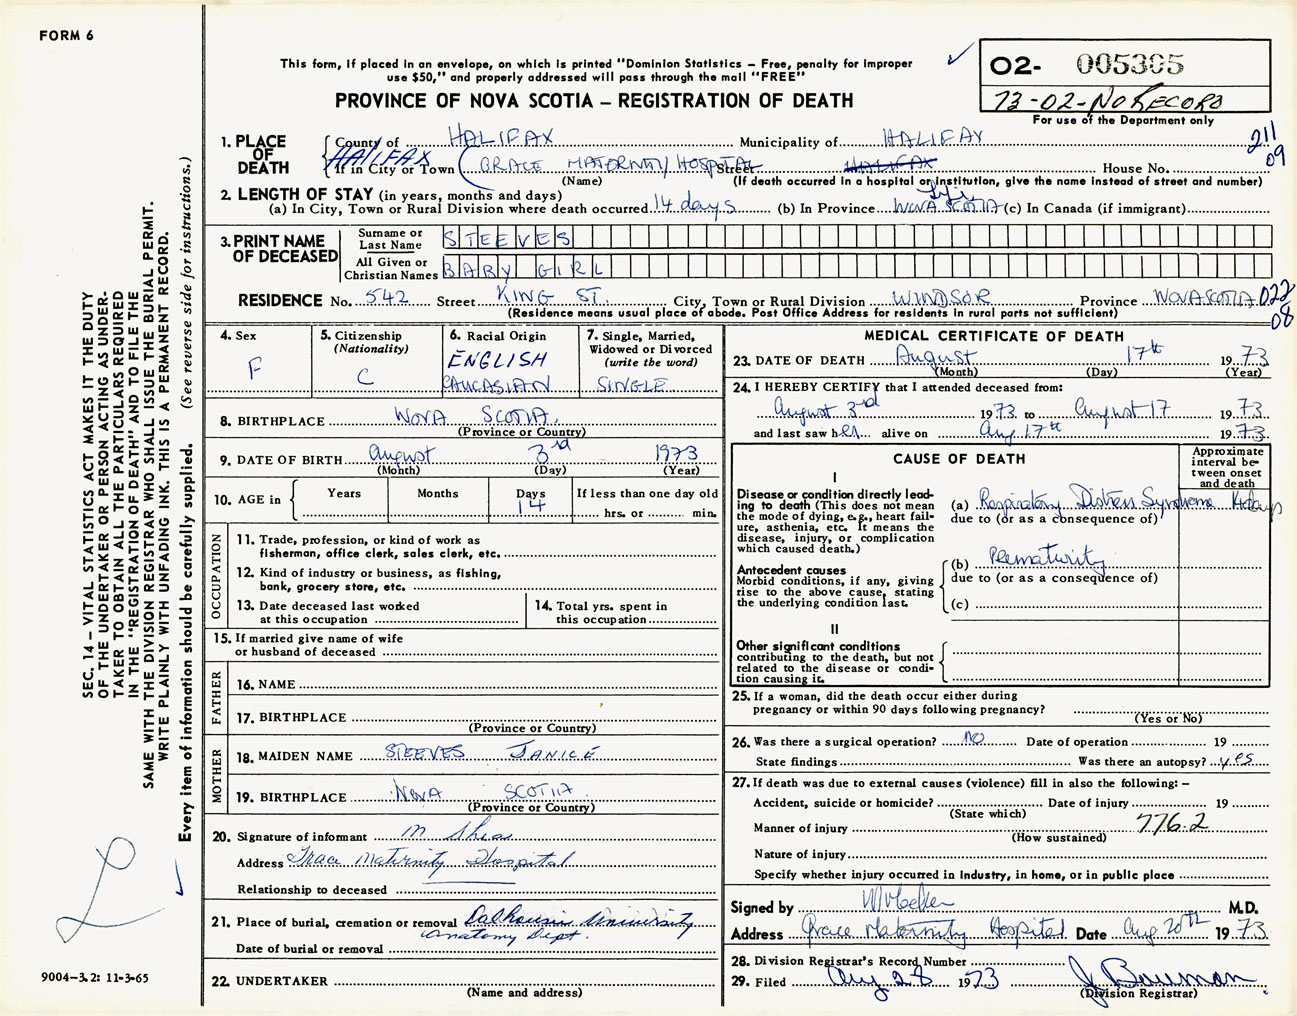 FORM 6
This form, if placed in an envelope, on which is printed "Dominion Statistics – Free, penalty for improper
use $50," and properly addressed will pass through the mail "FREE"
PROVINCE OF NOVA SCOTIA – REGISTRATION OF DEATH
02- 005305
73-02-NO RECORD
For use of the Department only
211
09
1. PLACE OF DEATH
County of HALIFAX Municipality of HALIFAX
HALIFAX
If in City or Town GRACE MATERNITY HOSPITAL Street HALIFAX House No.
(Name) (If death occurred in a hospital or institution, give the name instead of street and number)
2. LENGTH OF STAY (in years, months and days)
(a) In City, Town or Rural Division where death occurred 14 days (b) In Province NOVA SCOTIA (c) In Canada (if immigrant)
3. PRINT NAME OF DECEASED
Surname or Last Name STEEVES
All Given or Christian Names BABY GIRL
RESIDENCE No. 542 Street KING ST. City, Town or Rural Division WINDSOR Province NOVA SCOTIA 022
08
(Residence means usual place of abode. Post Office Address for residents in rural parts not sufficient)
4. Sex
F
5. Citizenship
(Nationality)
C
6. Racial Origin
ENGLISH
CAUCASIAN
7. Single, Married,
Widowed or Divorced
(write the word)
SINGLE
8. BIRTHPLACE NOVA SCOTIA.
(Province or Country)
9. DATE OF BIRTH August 3rd 1973
(Month) (Day) (Year)
10. AGE in
Years Months Days If less than one day old
14 hrs. or min.
OCCUPATION
11. Trade, profession, or kind of work as
fisherman, office clerk, sales clerk, etc.
12. Kind of industry or business, as fishing,
bank, grocery store, etc.
13. Date deceased last worked
at this occupation
14. Total yrs. spent in
this occupation
15. If married give name of wife
or husband of deceased
FATHER
16. NAME
17. BIRTHPLACE
(Province or Country)
MOTHER
18. MAIDEN NAME STEEVES JANICE
19. BIRTHPLACE NOVA SCOTIA
(Province or Country)
20. Signature of informant M
Address Grace Maternity Hospital
Relationship to deceased
21. Place of burial, cremation or removal Dalhousie University
Anatomy Dept.
Date of burial or removal
22. UNDERTAKER
(Name and address)
MEDICAL CERTIFICATE OF DEATH
23. DATE OF DEATH August 17th 1973
(Month) (Day) (Year)
24. I HEREBY CERTIFY that I attended deceased from:
August 3rd 1973 to August 17 1973
and last saw her alive on Aug 17th 1973
CAUSE OF DEATH
Approximate
interval be-
tween onset
and death
I
Disease or condition directly lead-
ing to death (This does not mean
the mode of dying, e.g., heart fail-
ure, asthenia, etc. It means the
disease, injury, or complication
which caused death.)
(a) Respiratory Distress Syndrome 14 days
due to (or as a consequence of)
Antecedent causes
Morbid conditions, if any, giving
rise to the above cause, stating
the underlying condition last.
(b) Prematurity
due to (or as a consequence of)
(c)
II
Other significant conditions
contributing to the death, but not
related to the disease or condi-
tion causing it.
25. If a woman, did the death occur either during
pregnancy or within 90 days following pregnancy?
(Yes or No)
26. Was there a surgical operation? NO Date of operation 19
State findings Was there an autopsy? yes
27. If death was due to external causes (violence) fill in also the following: –
Accident, suicide or homicide? Date of injury 19
(State which)
Manner of injury 776.2
(How sustained)
Nature of injury
Specify whether injury occurred in industry, in home, or in public place
Signed by M.D.
Address Grace Maternity Hospital Date Aug 20th 1973
28. Division Registrar's Record Number
29. Filed Aug 28 1973 J Bauman
(Division Registrar)
SEC. 14 – VITAL STATISTICS ACT MAKES IT THE DUTY
OF THE UNDERTAKER OR PERSON ACTING AS UNDER-
TAKER TO OBTAIN ALL THE PARTICULARS REQUIRED
IN THE "REGISTRATION OF DEATH" AND TO FILE THE
SAME WITH THE DIVISION REGISTRAR WHO SHALL ISSUE THE BURIAL PERMIT.
WRITE PLAINLY WITH UNFADING INK. THIS IS A PERMANENT RECORD.
Every item of information should be carefully supplied. (See reverse side for instructions.)
9004-3.2: 11-3-65